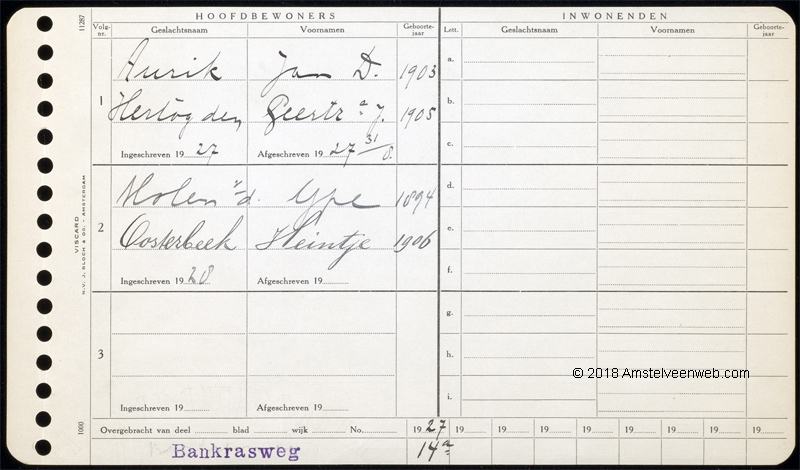 HOOFDBEWONERS INWONENDEN
11287
Volg-nr. Geslachtsnaam Voornamen Geboorte-jaar Lett. Geslachtsnaam Voornamen Geboorte-jaar
Aurik Jan D. 1903 a.
1
Hertog den Geertr a J. 1905 b.
c.
Ingeschreven 19 27 Afgeschreven 19 27 31/8.
Molen v/d. Ype 1894 d.
2
Oosterbeek Heintje 1906 e.
f.
Ingeschreven 19 28 Afgeschreven 19
g.
3 h.
i.
Ingeschreven 19 Afgeschreven 19
N.V. J. BLOCH & CO. - AMSTERDAM
VISCARD
1000
Overgebracht van deel blad wijk No. 19 27 19 19 19 19 19 19 19 19
Bankrasweg 14a
© 2018 Amstelveenweb.com